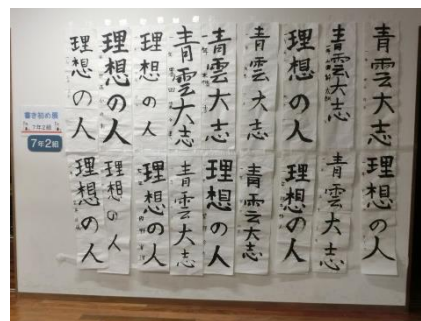 書き初め展
7年2組
7年2組
青雲大志
青雲大志
理想の人
青雲大志
青雲大志
青雲大志
理想の人
理想の人
理想の人
理想の人
青雲大志
理想の人
青雲大志
理想の人
青雲大志
理想の人
理想の人
理想の人